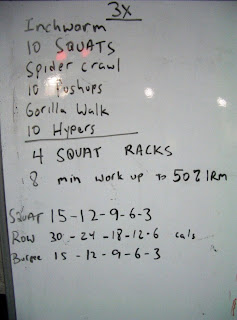 3X
Inchworm
10 SQUATS
Spider crawl
10 Pushups
Gorilla Walk
10 Hypers
4 SQUAT RACKS
8 min work up to 50% 1RM
SQUAT 15-12-9-6-3
Row 30-24-18-12-6 cals
Burpee 15-12-9-6-3